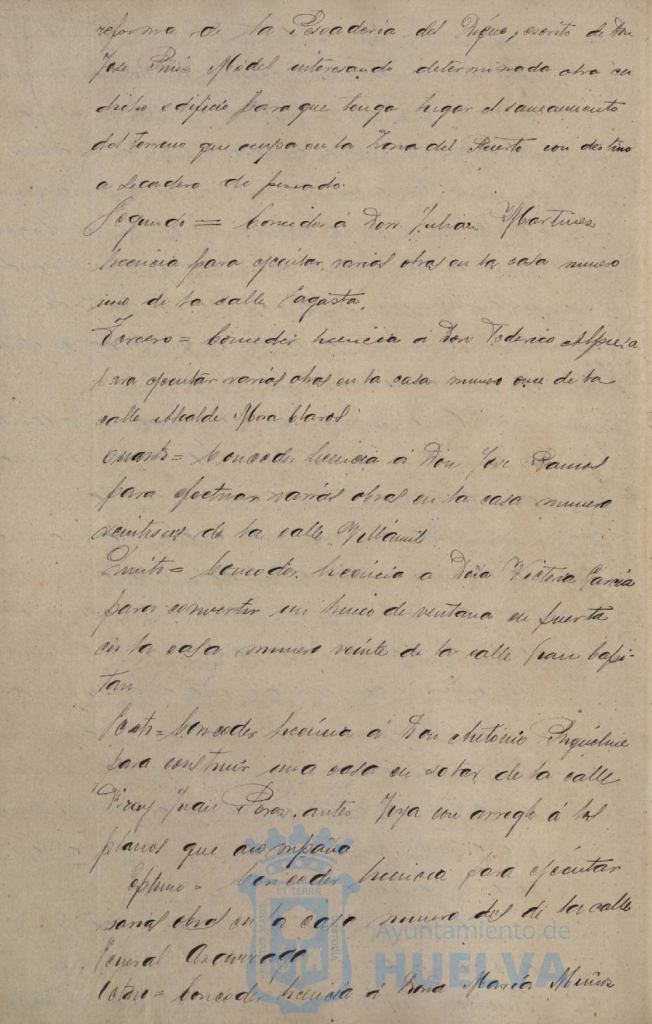 reforma de la Pescaderia del Dique, escrito de Don
Jose Ruiz Model interesando determinada obra en
dicho edificio para que tenga lugar el saneamiento
del terreno que ocupa en la Zona del Puerto con destino
a secadero de pescado.
Segundo = Conceder á Don Julian Martinez
licencia para ejecutar varias obras en la casa numero
uno de la calle Sagasta.
Tercero = Conceder licencia á Don Federico
para ejecutar varias obras en la casa numero once de la
calle Alcalde Mora Claros.
Cuarto = Conceder licencia á Don Jose Ramos
para efectuar varias obras en la casa numero
de la calle
Quinto = Conceder licencia a Doña Victoria Garcia
para convertir un hueco de ventana en puerta
en la casa numero veinte de la calle Gran Capi-
tan
Sexto = Conceder licencia á Don Antonio Riquelme
para construir una casa en solar de la calle
Fray Juan Perez, antes Joya con arreglo á los
planos que acompaña
Septimo = Conceder licencia para ejecutar
varias obras en la casa numero dos de la calle
General Azcarraga
Octavo = Conceder licencia á Dona Maria Muñoz
Ayuntamiento de
HUELVA